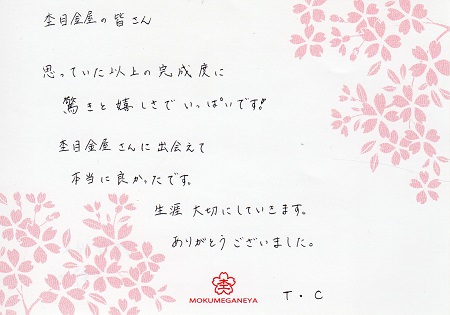 杢目金屋の皆さん
思っていた以上の完成度に
驚きと嬉しさでいっぱいです!!
杢目金屋さんに出会えて
本当に良かったです。
生涯大切にしていきます。
ありがとうございました。
杢
MOKUMEGANEYA
T・C